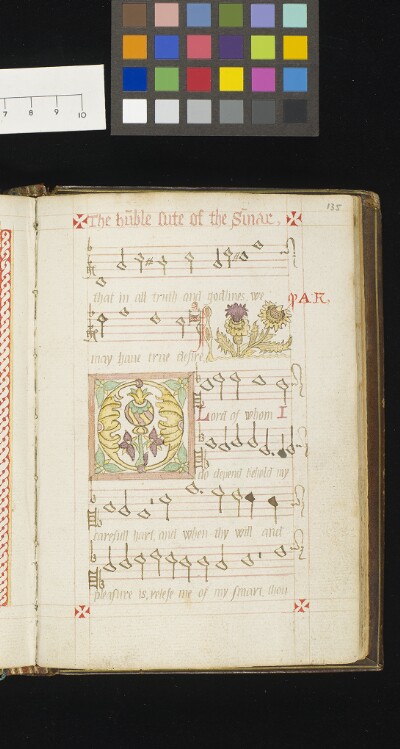 7 8 9 10
135
The hūble sute of the Sīnar.
that in all truth and godlines, we
MAR.
may haue true desire
Lord of whom I
do depend behold my
carefull hart, and when thy will and
pleasure is, relese me of my smart, thou